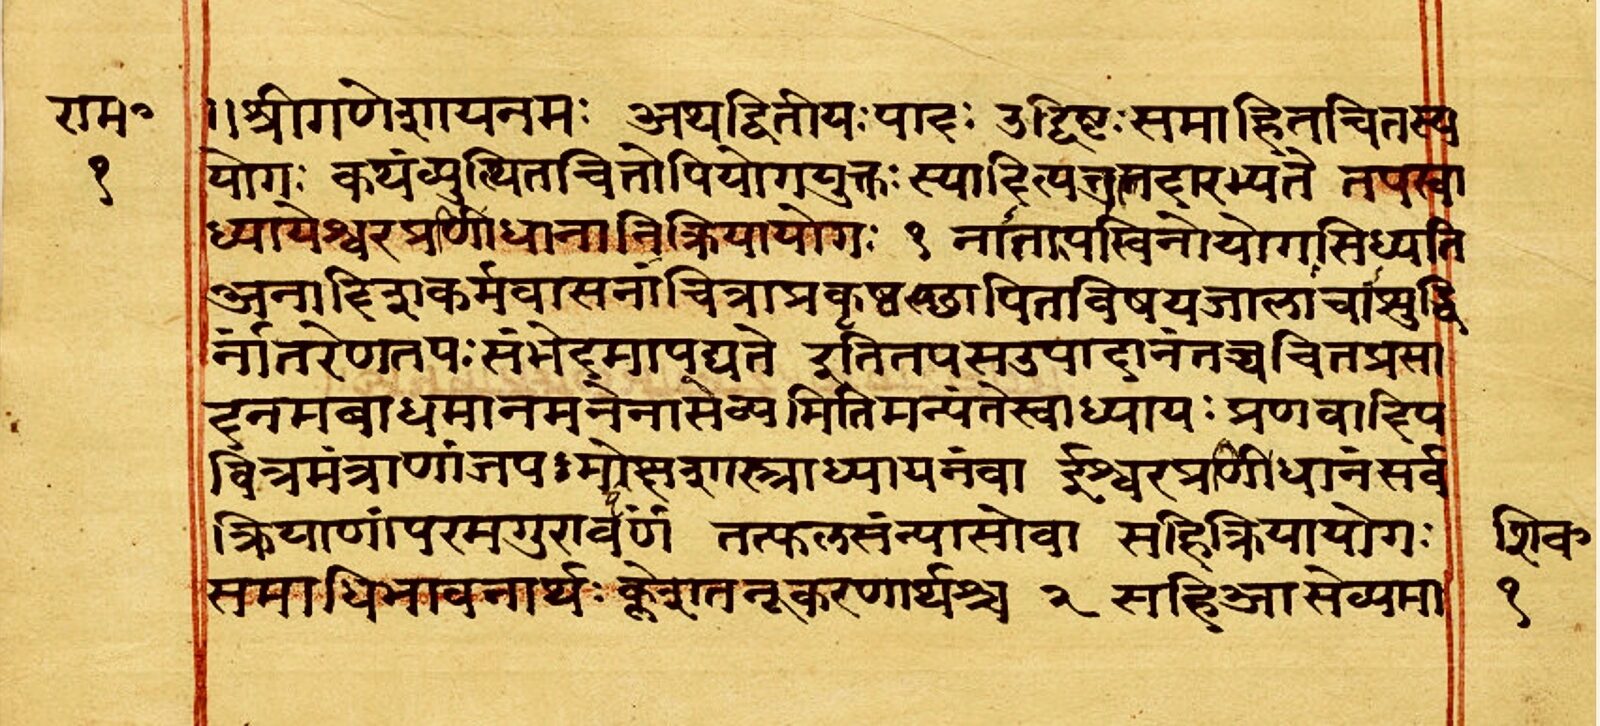 राम॰ ॥श्रीगणेशायनमः अथद्वितीयःपादः उद्दिष्टःसमाहितचित्तस्य
१ योगः कथंव्युत्थितचित्तोपियोगयुक्तःस्यादित्येत्तदारभ्यते तपस्वा
ध्यायेश्वरप्रणीधानानिक्रियायोगः १ नातापस्विनोयोगसिध्यति
अनादिक्शकर्मवासनाचित्राप्रकृष्वछापितविषयजालाचाशुद्धि
र्नातरेणतपःसंभेदमापद्यते इतितपसउपादानंतच्चचितप्रसा
दनमबाधमानमनेनासेव्यमितिमन्यंतेस्वाध्यायः प्रणवादिप
वित्रमंत्राणांजपःमोक्षशास्त्राध्यायनंवा ईश्वरप्रणीधानंसर्व
क्रियाणांपरमगुरावर्पणं तत्फलसंन्यासोवा सहिक्रियायोगः शिव॰
समाधिभावनार्थः क्लेशतनूकरणार्थश्च २ सहिआसेव्यमा १